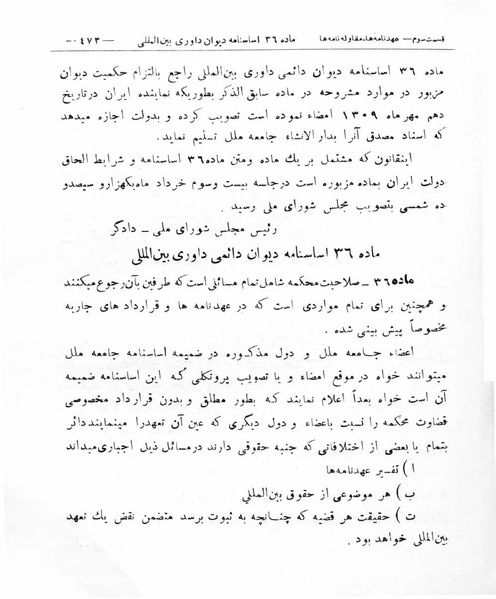 قسمت سوم — عهدنامه‌ها، مقاوله‌نامه‌ها ماده ۳۶ اساسنامه دیوان داوری بین‌المللی —۴۷۳۰—
ماده ۳۶ اساسنامه دیوان دائمی داوری بین‌المللی راجع بالتزام حکمیت دیوان
مزبور در موارد مشروحه در ماده سابق الذکر بطوریکه نماینده ایران در تاریخ
دهم مهر ماه ۱۳۰۹ امضاء نموده است تصویب کرده و بدولت اجازه میدهد
که اسناد مصدق آنرا بدار الانشاء جامعه ملل تسلیم نماید.
اینقانون که مشتمل بر یك ماده ومتن ماده ۳۶ اساسنامه و شرایط الحاق
دولت ایران بماده مزبوره است درجلسه بیست وسوم خرداد ماه یکهزارو سیصدو
ده شمسی بتصویب مجلس شورای ملی رسید.
رئیس مجلس شورای ملی — دادگر
ماده ۳۶ اساسنامه دیوان دائمی داوری بین‌المللی
ماده ۳۶ — صلاحیت محکمه شامل تمام مسائلی است که طرفین بآن رجوع میکنند
و همچنین برای تمام مواردی است که در عهدنامه ها و قرارداد های جاریه
مخصوصاً پیش بینی شده.
اعضاء جامعه ملل و دول مذکوره در ضمیمه اساسنامه جامعه ملل
میتوانند خواه در موقع امضاء و یا تصویب پروتکلی که این اساسنامه ضمیمه
آن است خواه بعداً اعلام نمایند که بطور مطلق و بدون قرارداد مخصوصی
قضاوت محکمه را نسبت باعضاء و دول دیگری که عین آن تعهدرا مینمایند دائر
بتمام یا بعضی از اختلافاتی که جنبه حقوقی دارند درمسائل ذیل اجباری میداند
ا) تفسیر عهدنامه‌ها
ب) هر موضوعی از حقوق بین‌المللی
ت) حقیقت هر قضیه که چنانچه به ثبوت برسد متضمن نقض یك تعهد
بین‌المللی خواهد بود.